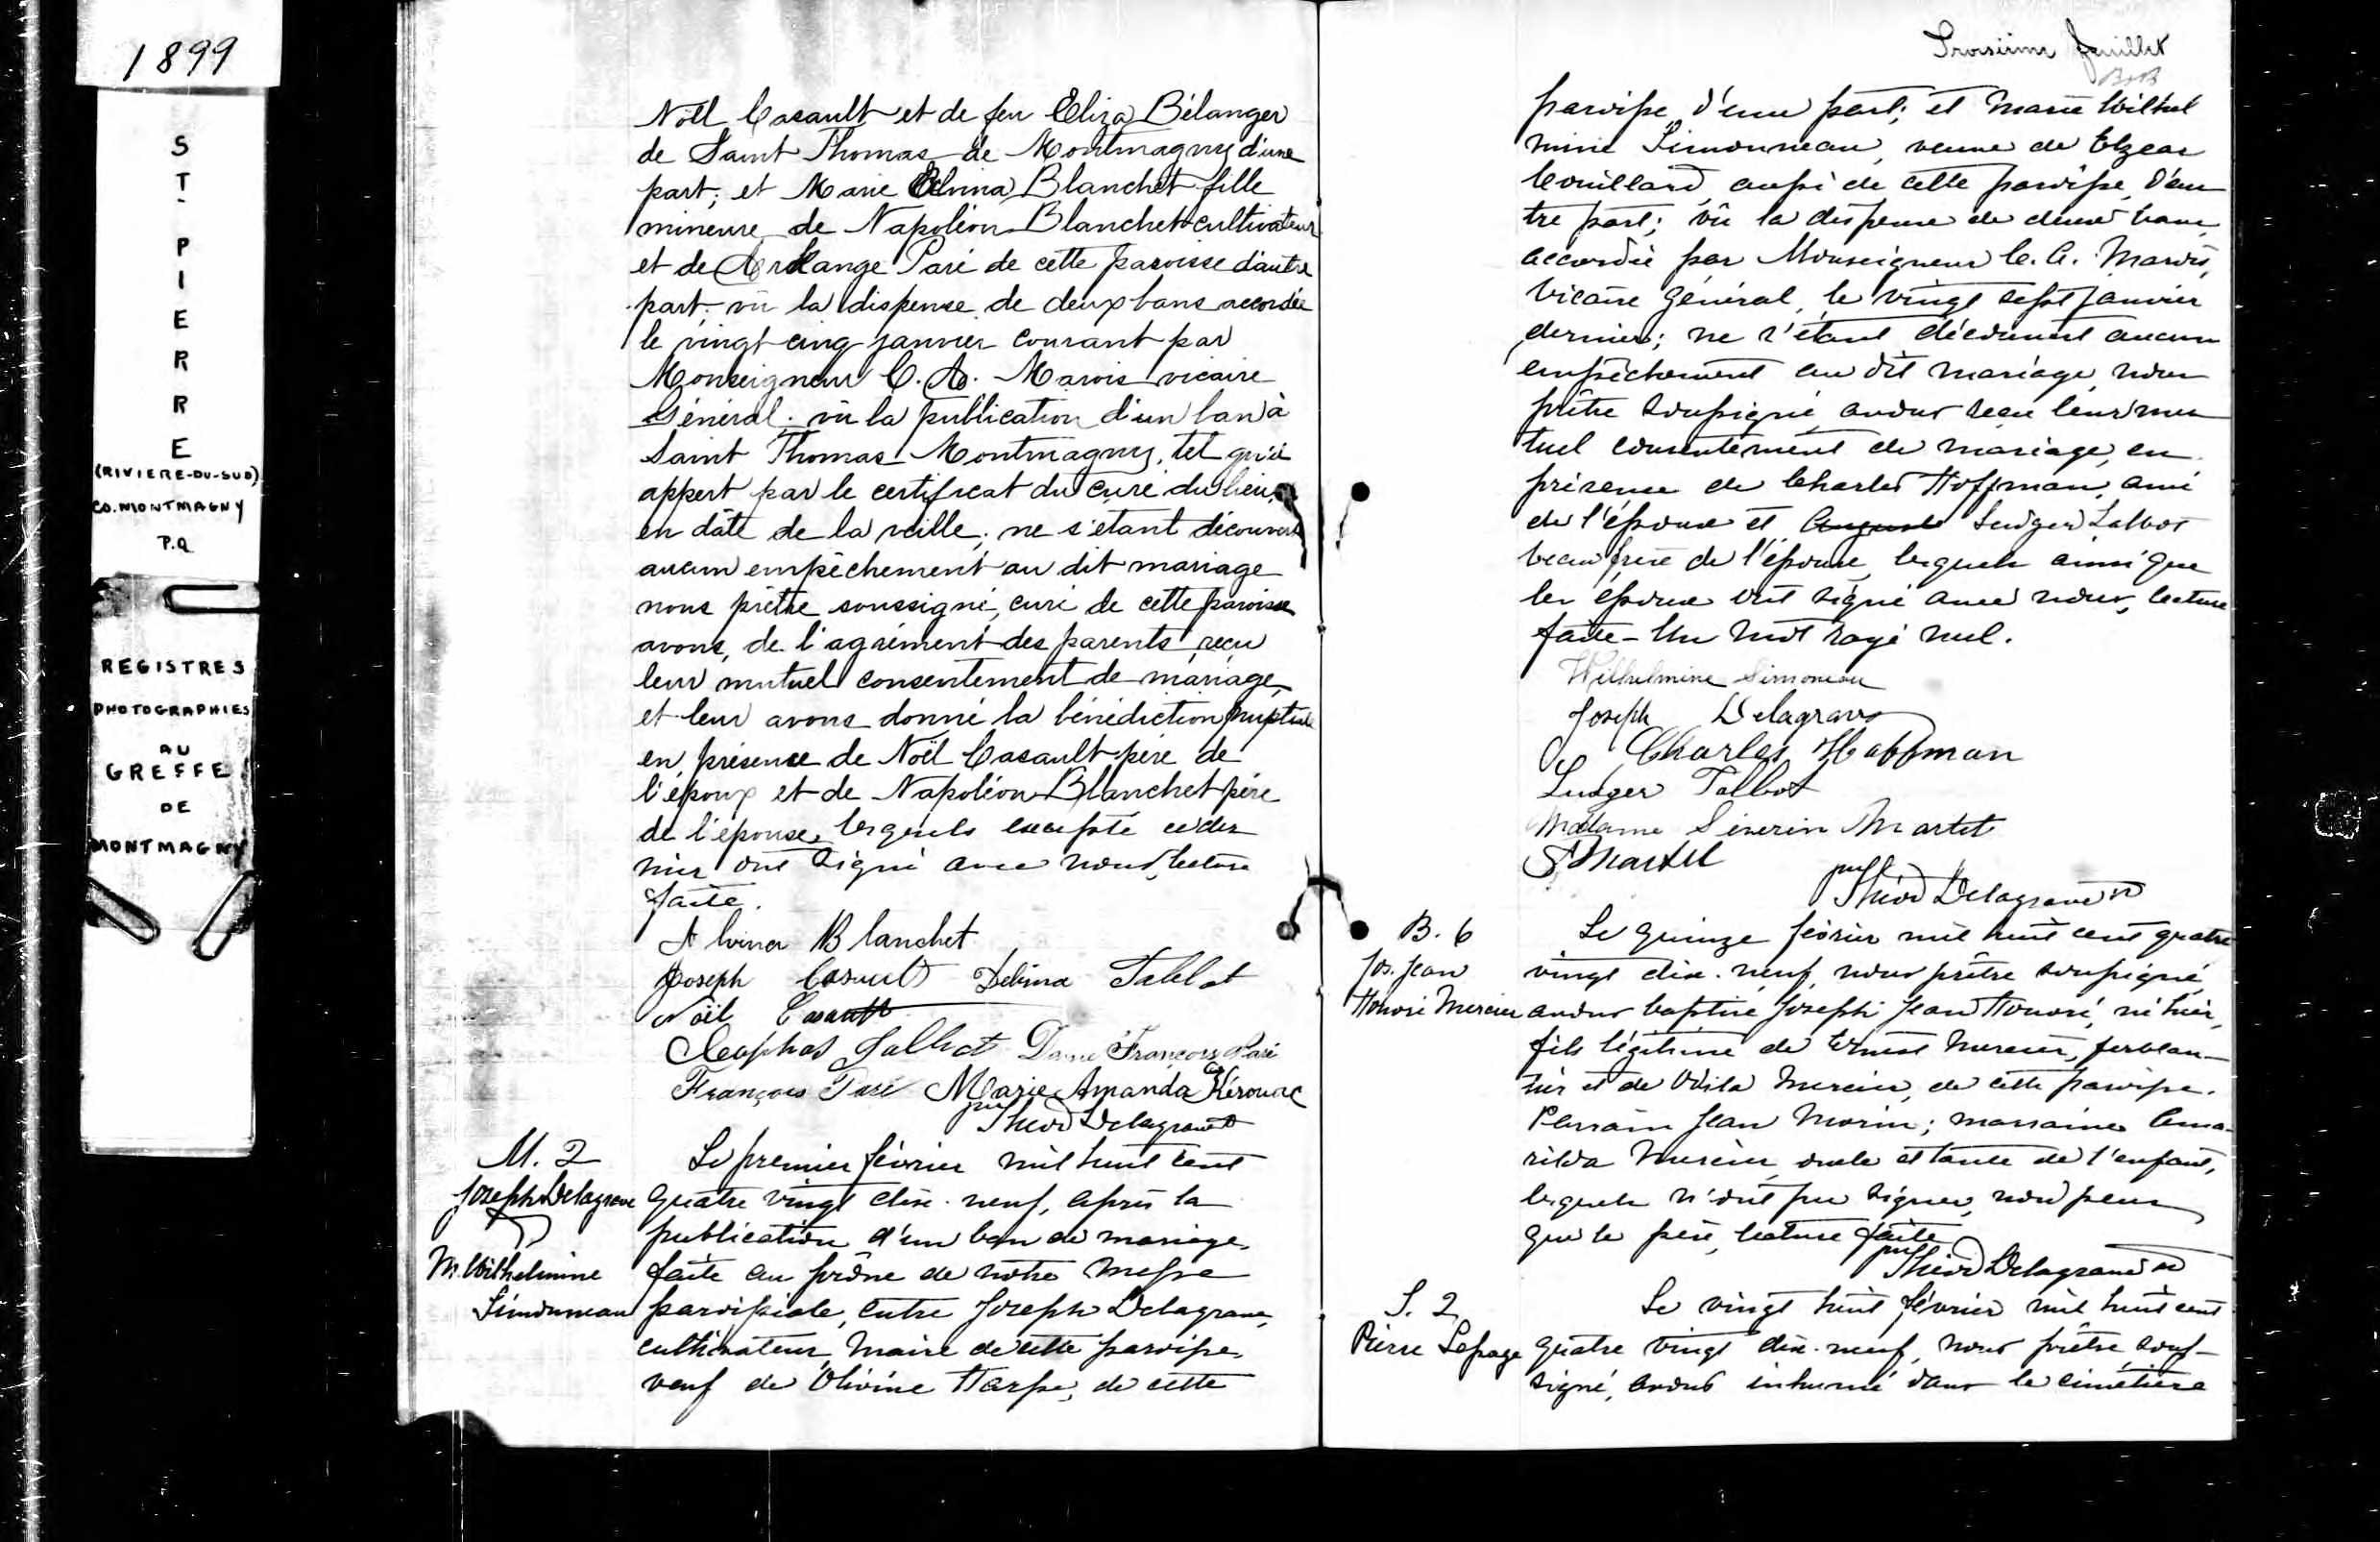 1899
ST PIERRE
(RIVIERE-DU-SUD)
CO. MONTMAGNY
P.Q
REGISTRES
PHOTOGRAPHIES
AU
GREFFE
DE
MONTMAGNY
Noël Casault et de feu Eliza Bélanger
de Saint Thomas de Montmagny d'une
part; et Marie Elvina Blanchet fille
mineure de Napoléon Blanchet cultivateur
et de Arkange Paré de cette paroisse d'autre
part; vu la dispense de deux bans accordée
le vingt cinq janvier courant par
Monseigneur C. A. Marois vicaire
Général; vu la publication d'un ban à
Saint Thomas Montmagny, tel qu'il
appert par le certificat du curé du lieu,
en date de la veille; ne s'étant découvert
aucun empêchement au dit mariage
nous prêtre soussigné, curé de cette paroisse
avons, de l'agrément des parents, reçu
leur mutuel consentement de mariage,
et leur avons donné la bénédiction nuptiale
en présence de Noël Casault père de
l'époux et de Napoléon Blanchet père
de l'épouse, lesquels excepté ce der
nier ont signé avec nous, lecture
faite.
Alvina Blanchet
Joseph Casault Delima Talbot
Noël Casault
Cleophas Talbot Dame François Paré
François Paré Marie Amanda Kérouac
Théod Delagrave ptre
M. 2
Joseph Delagrave
M. Wilhelmine
Simonneau
Le premier février mil huit cent
quatre vingt dix-neuf, après la
publication d'un ban de mariage,
faite au prône de notre messe
paroissiale, entre Joseph Delagrave,
cultivateur, Maire de cette paroisse,
veuf de Olivine Harpe, de cette
Troisième feuillet
paroisse d'une part; et Marie Wilhel
mine Simonneau, veuve de Elzear
Couillard, aussi de cette paroisse, d'au
tre part; vû la dispense de deux bans
accordée par Monseigneur C. A. Marois,
Vicaire Général, le vingt sept janvier
dernier; ne s'étant découvert aucun
empêchement au dit mariage, nous
prêtre soussigné avons reçu leur mu
tuel consentement de mariage, en
présence de Charles Hoffman, ami
de l'époux et August Ludger Talbot
beau frère de l'épouse, lesquels ainsi que
les époux ont signé avec nous, lecture
faite - Un mot rayé nul.
Wilhelmine Simoneau
Joseph Delagrave
Charles Hoffman
Ludger Talbot
Madame Séverin Martel
S Martel
Théod Delagrave ptre
B. 6
Jos. Jean
Honoré Mercier
Le quinze février mil huit cent quatre
vingt dix-neuf, nous prêtre soussigné,
avons baptisé Joseph Jean Honoré, né hier,
fils légitime de Ernest Mercier, ferblan-
tier et de Odila Mercier, de cette paroisse.
Parrain Jean Morin; marraine Ama-
rilda Mercier, oncle et tante de l'enfant,
lesquels n'ont pu signer, non plus
que le père, lecture faite
Théod Delagrave ptre
S. 2
Pierre Lepage
Le vingt huit février mil huit cent
quatre vingt dix-neuf, nous prêtre sous-
signé, avons inhumé dans le cimetière